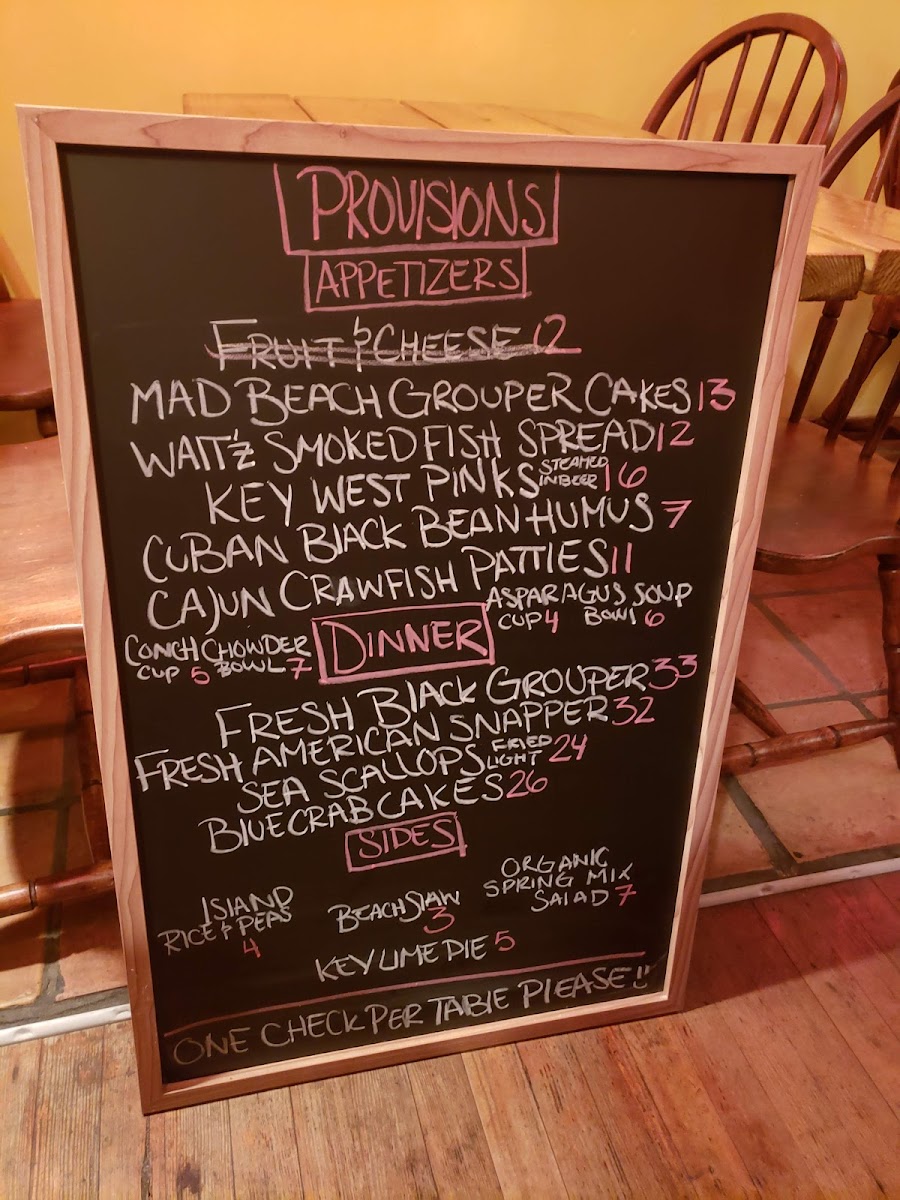 PROVISIONS
APPETIZERS
FRUIT & CHEESE 12
MAD BEACH GROUPER CAKES 13
WATT'Z SMOKED FISH SPREAD 12
KEY WEST PINKS STEAMED IN BEER 16
CUBAN BLACK BEAN HUMUS 7
CAJUN CRAWFISH PATTIES 11
ASPARAGUS SOUP
CUP 4 BOWL 6
CONCH CHOWDER
CUP 5 BOWL 7
DINNER
FRESH BLACK GROUPER 33
FRESH AMERICAN SNAPPER 32
SEA SCALLOPS FRIED LIGHT 24
BLUE CRAB CAKES 26
SIDES
ISLAND
RICE & PEAS
4
BEACH SLAW
3
ORGANIC
SPRING MIX
SALAD 7
KEY LIME PIE 5
ONE CHECK PER TABLE PLEASE!!